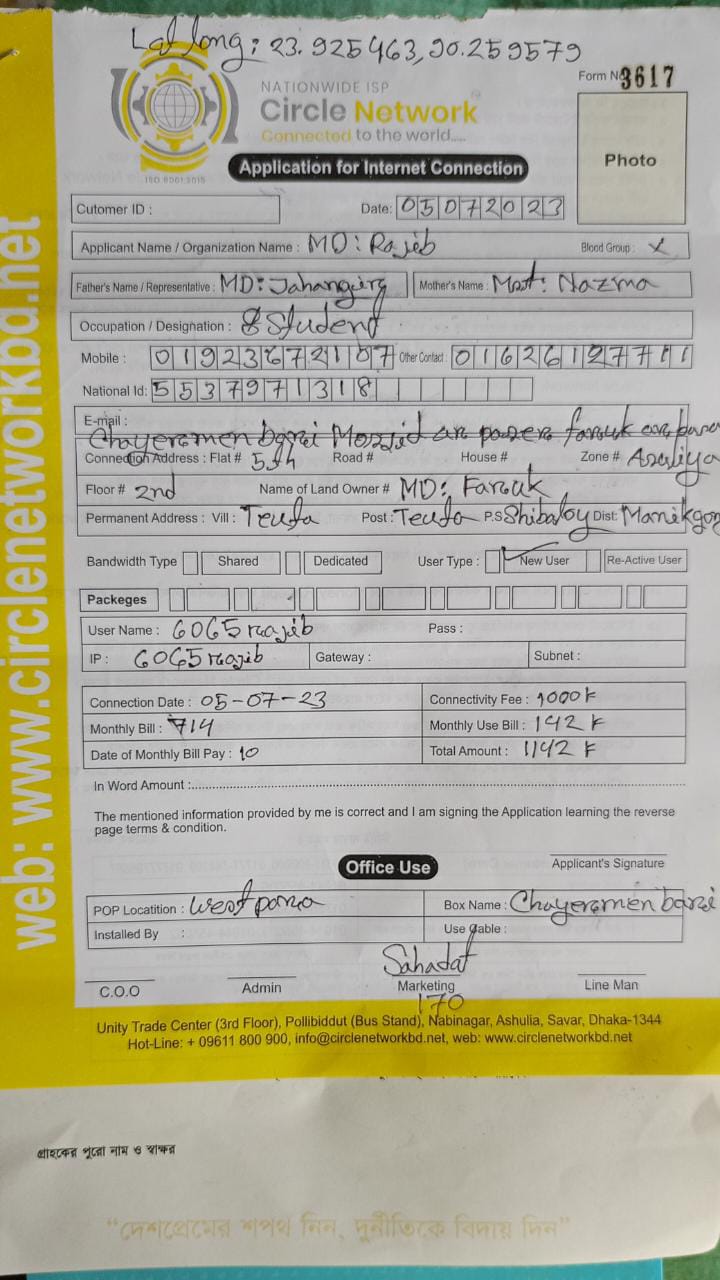 Lat long: 23.925463, 90.259579
NATIONWIDE ISP
Form No 3617
Circle Network
Connected to the world.....
ISO 9001:2015
Photo
Application for Internet Connection
Cutomer ID :
Date: 05072023
Applicant Name / Organization Name : MD: Rajib
Blood Group : X
Father's Name / Representative : MD: Jahangirg
Mother's Name : Most: Nazma
Occupation / Designation : Student
Mobile : 01923672107 Other Contact : 01626127711
National Id: 5537971318
E-mail :
Chayeramen bari Mosjid ar paser farouk ar basa
Connection Address : Flat # 5th Road # House # Zone # Asuliya
Floor # 2nd Name of Land Owner # MD: Farouk
Permanent Address : Vill : Teuta Post : Teuta P.S Shibaloy Dist: Manikgon
Bandwidth Type Shared Dedicated User Type : New User Re-Active User
Packeges
User Name : 6065rajib Pass :
IP : 6065rajib Gateway : Subnet :
Connection Date : 05-07-23 Connectivity Fee : 1000 F
Monthly Bill : 714 Monthly Use Bill : 142 F
Date of Monthly Bill Pay : 10 Total Amount : 1142 F
In Word Amount :
The mentioned information provided by me is correct and I am signing the Application learning the reverse
page terms & condition.
Office Use
Applicant's Signature
POP Locatition : West para Box Name : Chayeramen bari
Installed By : Use Cable :
Sahadat
C.O.O Admin Marketing Line Man
170
Unity Trade Center (3rd Floor), Pollibiddut (Bus Stand), Nabinagar, Ashulia, Savar, Dhaka-1344
Hot-Line: + 09611 800 900, info@circlenetworkbd.net, web: www.circlenetworkbd.net
web: www.circlenetworkbd.net
গ্রাহকের পুরো নাম ও স্বাক্ষর
“দেশপ্রেমের শপথ নিন, দুর্নীতিকে বিদায় দিন”